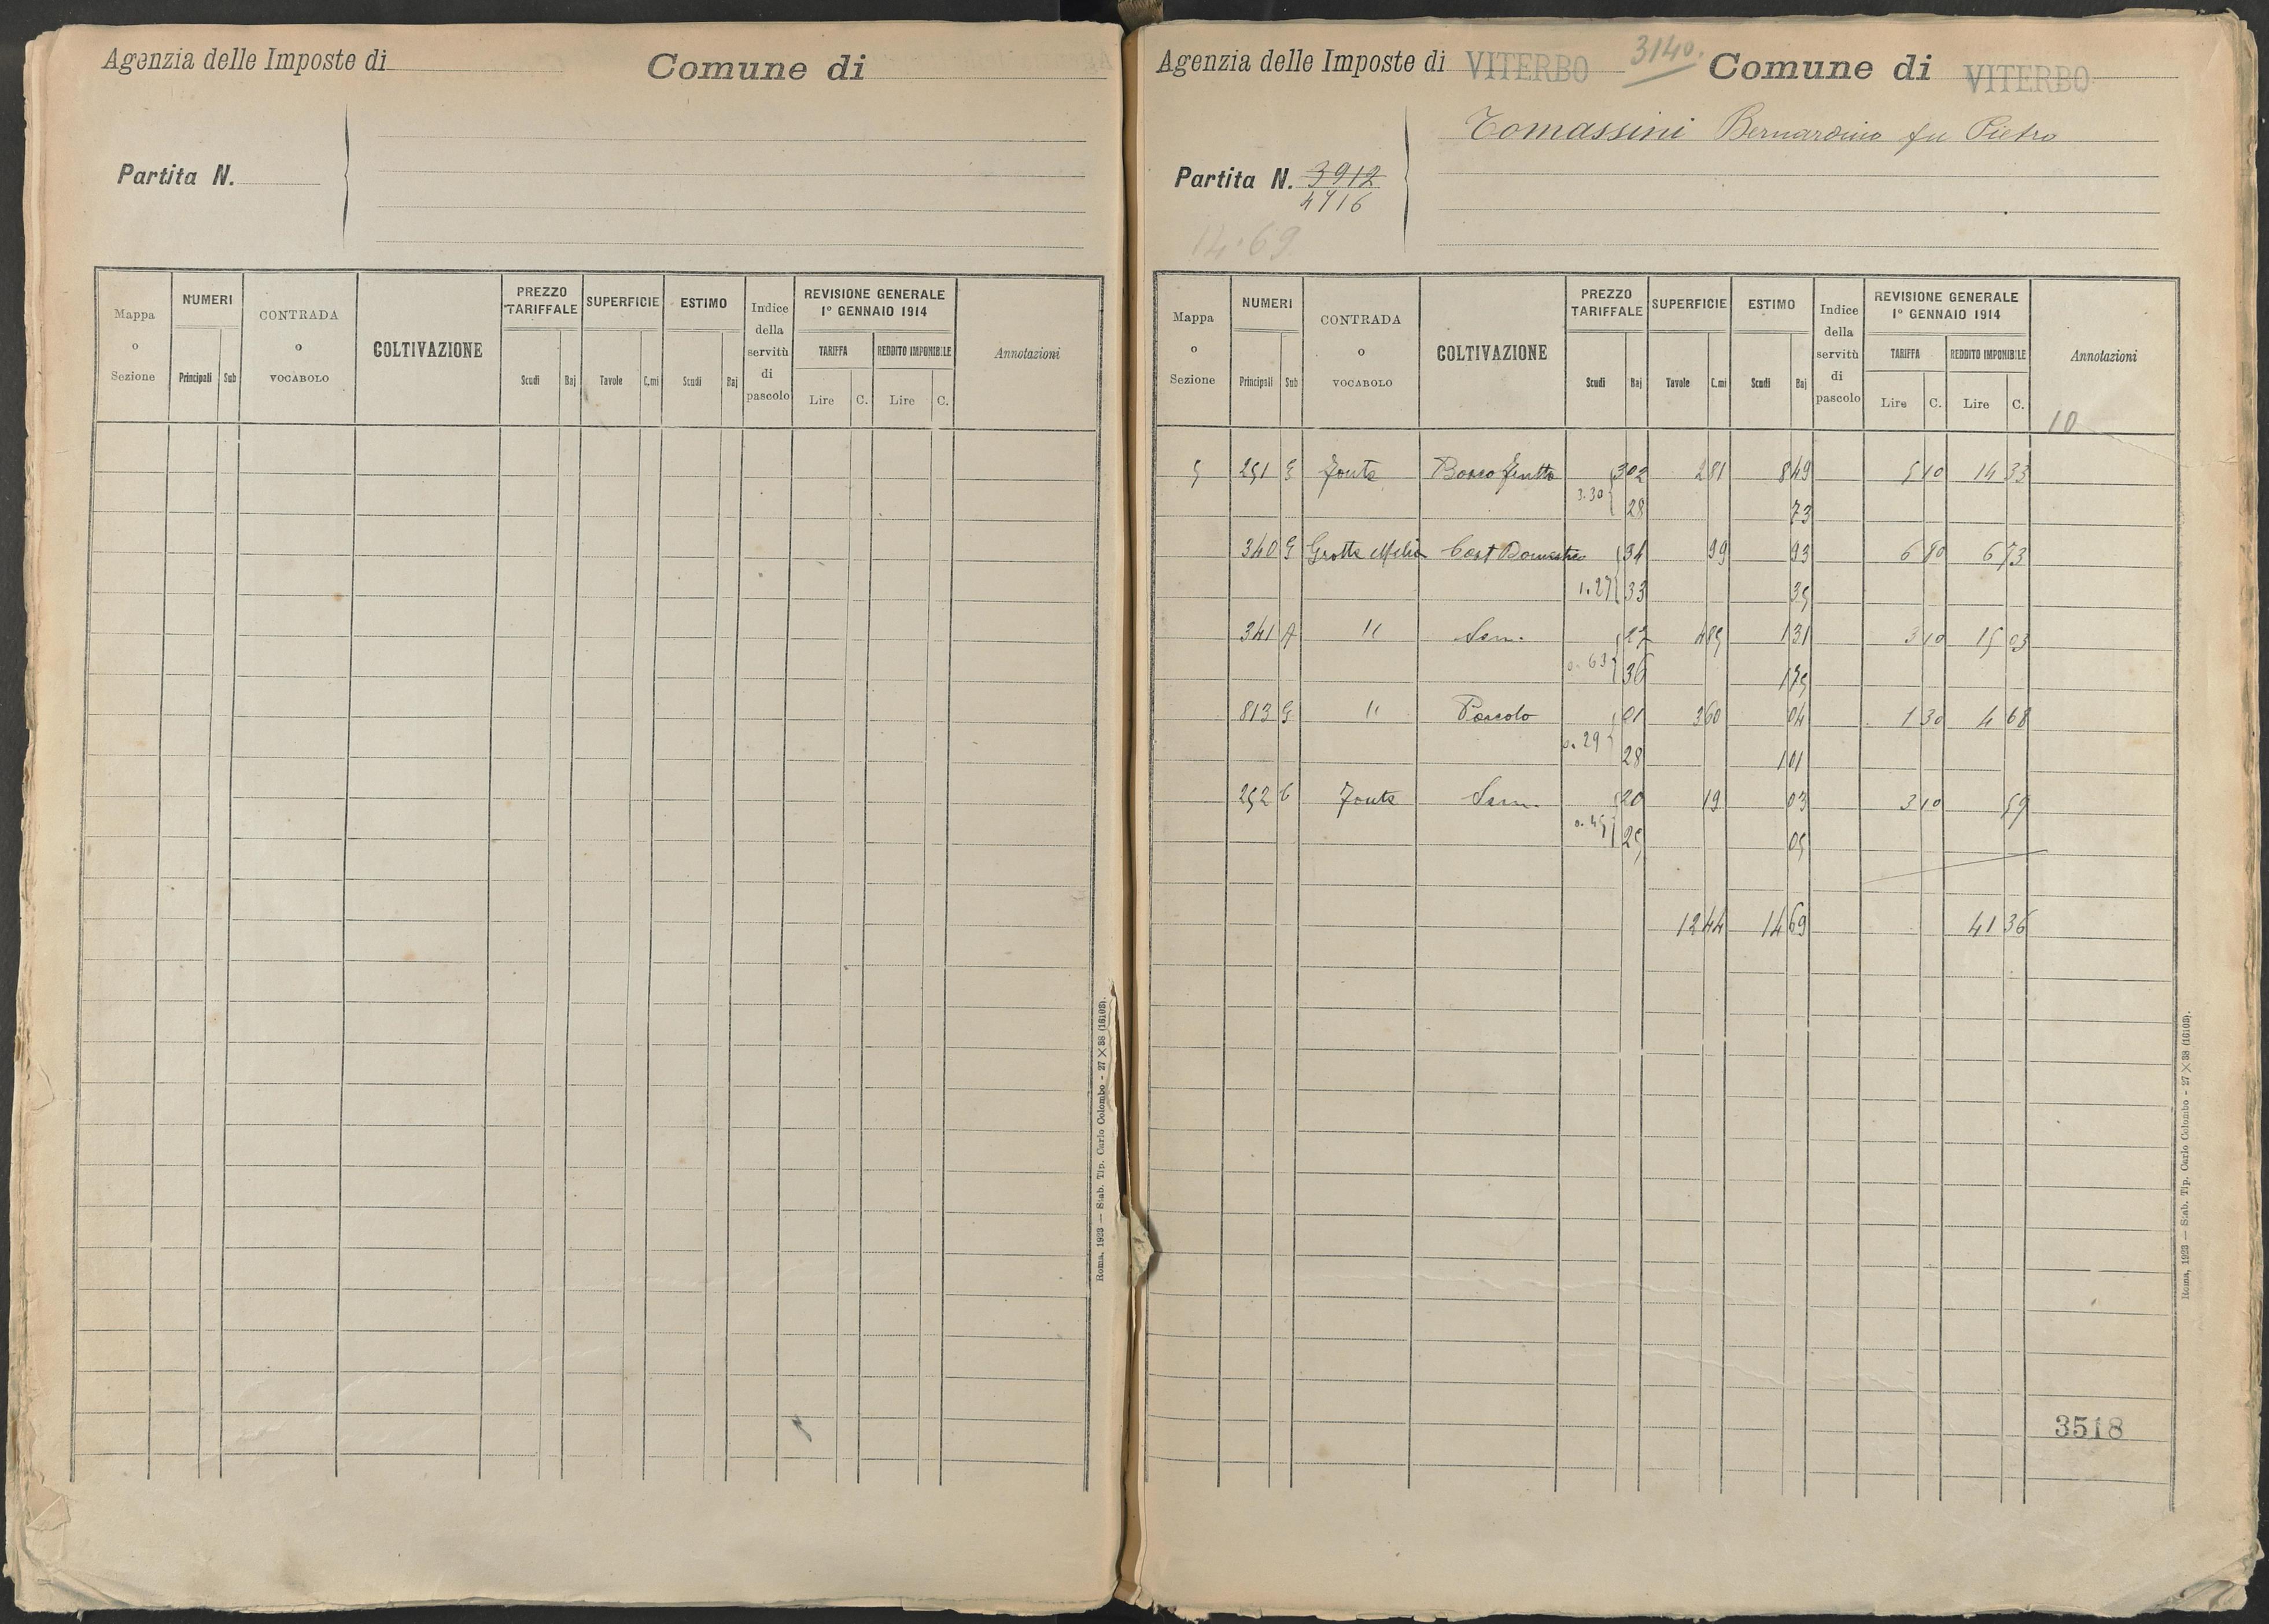 Agenzia delle Imposte di
Comune di
Partita N.
Mappa o Sezione
NUMERI
Principali Sub
CONTRADA o VOCABOLO
COLTIVAZIONE
PREZZO TARIFFALE
Scudi Baj
SUPERFICIE
Tavole C.mi
ESTIMO
Scudi Baj
Indice della servitù di pascolo
REVISIONE GENERALE
1° GENNAIO 1914
TARIFFA
Lire C.
REDDITO IMPONIBILE
Lire C.
Annotazioni
Roma, 1923 — Stab. Tip. Carlo Colombo - 27 X 38 (16103).
Agenzia delle Imposte di VITERBO 3140. Comune di VITERBO
Tomassini Bernardino fu Pietro
Partita N. 3912
4716
14.69
Mappa o Sezione
NUMERI
Principali Sub
CONTRADA o VOCABOLO
COLTIVAZIONE
PREZZO TARIFFALE
Scudi Baj
SUPERFICIE
Tavole C.mi
ESTIMO
Scudi Baj
Indice della servitù di pascolo
REVISIONE GENERALE
1° GENNAIO 1914
TARIFFA
Lire C.
REDDITO IMPONIBILE
Lire C.
Annotazioni
10
5 251 Bosco 302 2 81 8 49 5 10 14 33
3.30 28 73
340 Grotte Cast Domestico 34 99 93 6 80 6 73
1.27 33 35
341 A " Sem. 27 4 85 1 31 3 10 15 03
0.63 36 1 75
813 " Pascolo 01 3 60 04 1 30 4 68
0.29 28 1 01
252 Sem. 20 19 03 3 10 59
0.45 25 05
12 44 14 69 41 36
3518
Roma, 1923 — Stab. Tip. Carlo Colombo - 27 X 38 (16103).